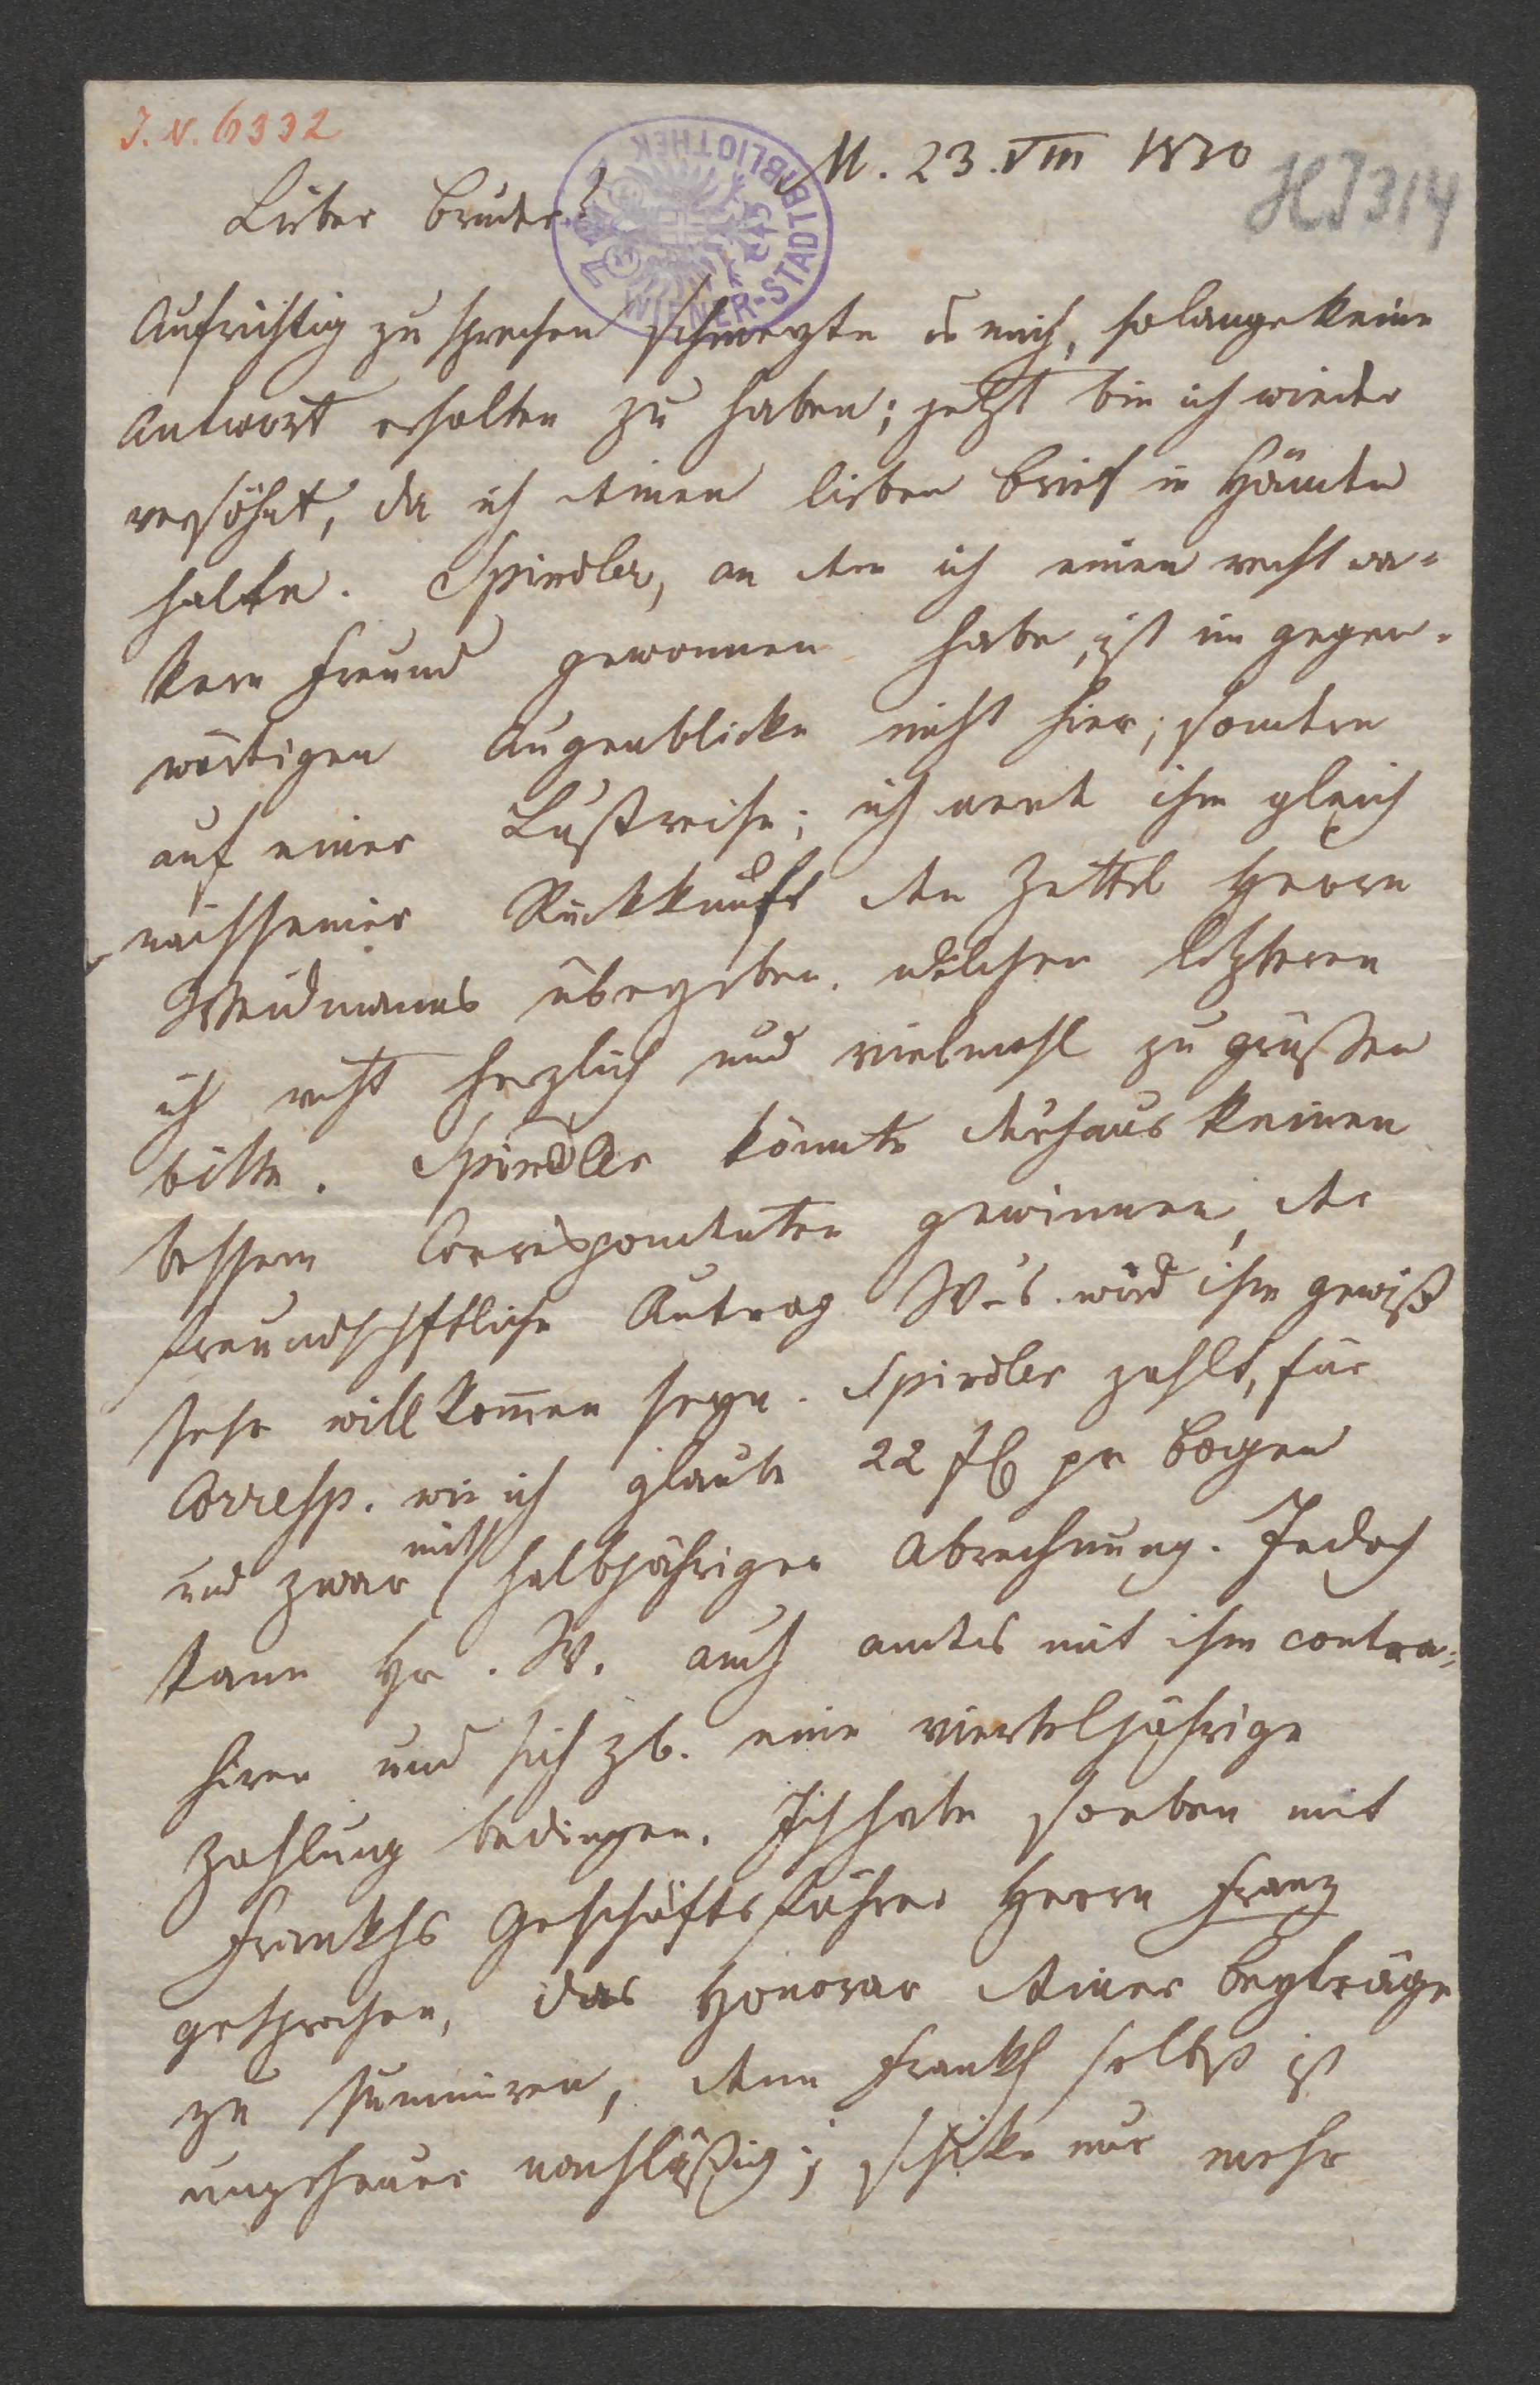 I. N. 6332
M. 23. VIII 1830
HI314
WIENER-STADTBIBLIOTHEK
Lieber Bruder!
Aufrichtig zu sprechen schmerzte es mich, solange keine
Antwort erhalten zu haben; jetzt bin ich wieder
versöhnt, da ich deinen lieben Brief in Händen
halte. Spindler, an dem ich einen recht wa-
kern Freund gewonnen habe, ist im gegen-
wärtigen Augenblicke nicht hier; sondern
auf einer Lustreise; ich werde ihm gleich
nach seiner Rückkunft den Zettel Herrn
Weidmanns übergeben. welchen letzteren
ich recht herzlich und vielmahl zu grüßen
bitte. Spindler könnte durchaus keinen
bessern Correspondenten gewinnen, der
freundschftliche Antrag W-s. wird ihm gewiß
sehr willkom̅en seyn. Spindler zahlt, für
Corresp. wie ich glaube 22 fl pr Bogen
und zwar mit halbjähriger Abrechnung. Jedoch
kann Hr. W. auch anders mit ihm contra-
hiren und sich zb. eine vierteljährige
Zahlung bedingen. Ich habe soeben mit
Frankhs Geschäftsführer Herrn Franz
gesprochen, das Honorar deiner Beyträge
zu summiren, denn Frankh selbst ist
ungeheuer nachläßig; schike nur mehr